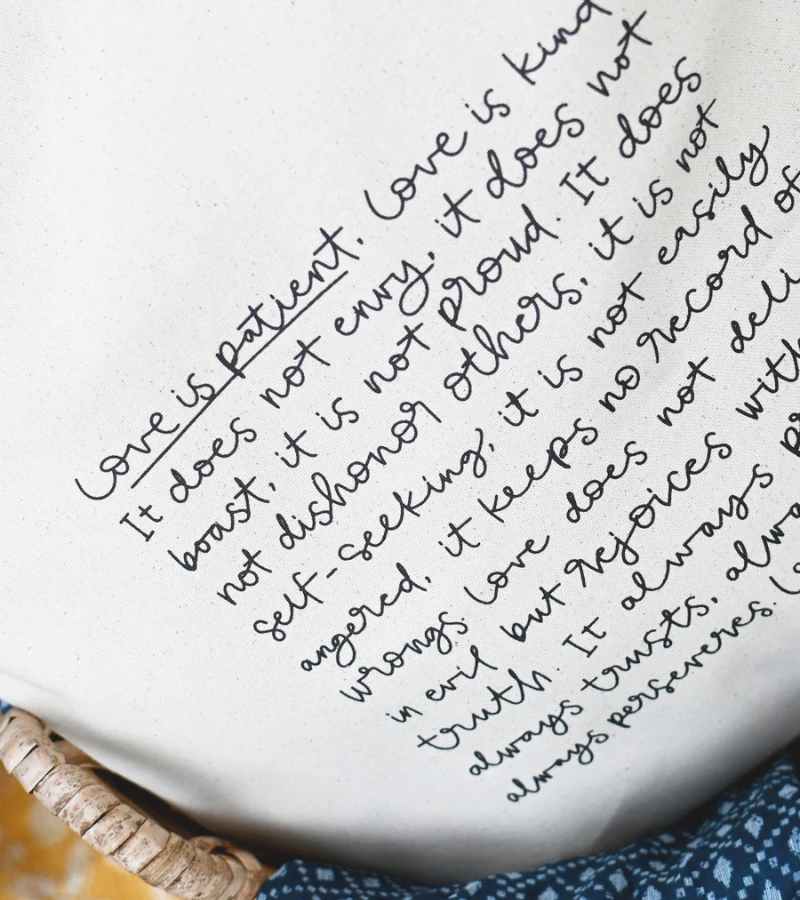 Love is patient, Love is kind
It does not envy, it does not
boast, it is not proud. It does
not dishonor others, it is not
self-seeking, it is not easily
angered, it keeps no record of
wrongs. Love does not deli
in evil but rejoices with
truth. It always pr
always trusts, alwa
always perseveres. Lo